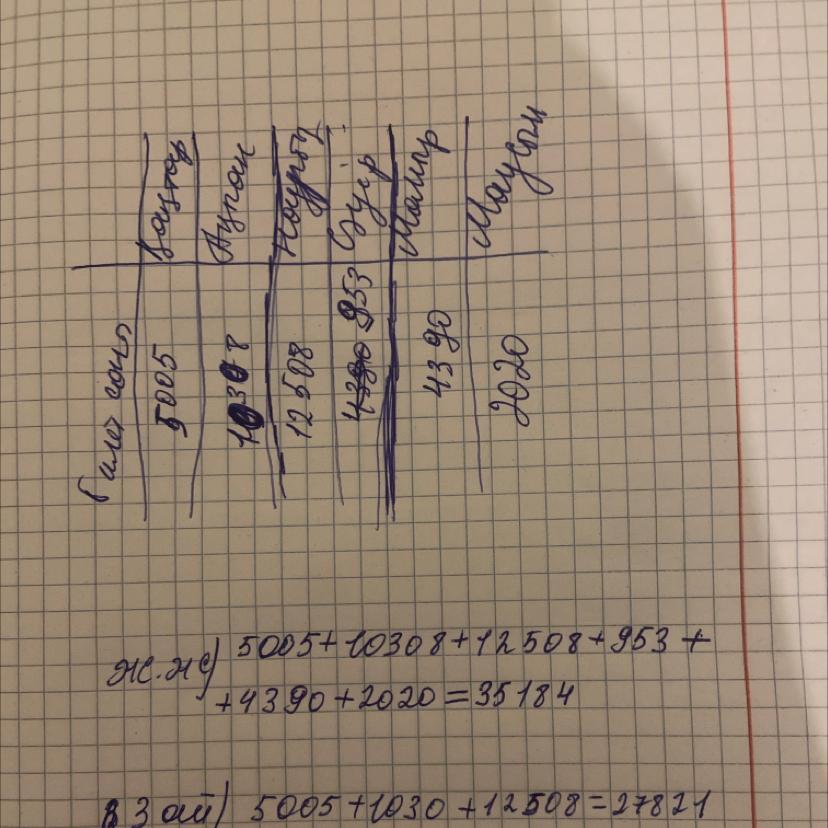 Билет саны
5005 Қаңтар
10308 Ақпан
12508 Наурыз
4390 953 Сәуір
4390 Мамыр
2020 Маусым
ж.ж) 5005+10308+12508+953+
+4390+2020=35184
3 ай) 5005+1030+12508=27821